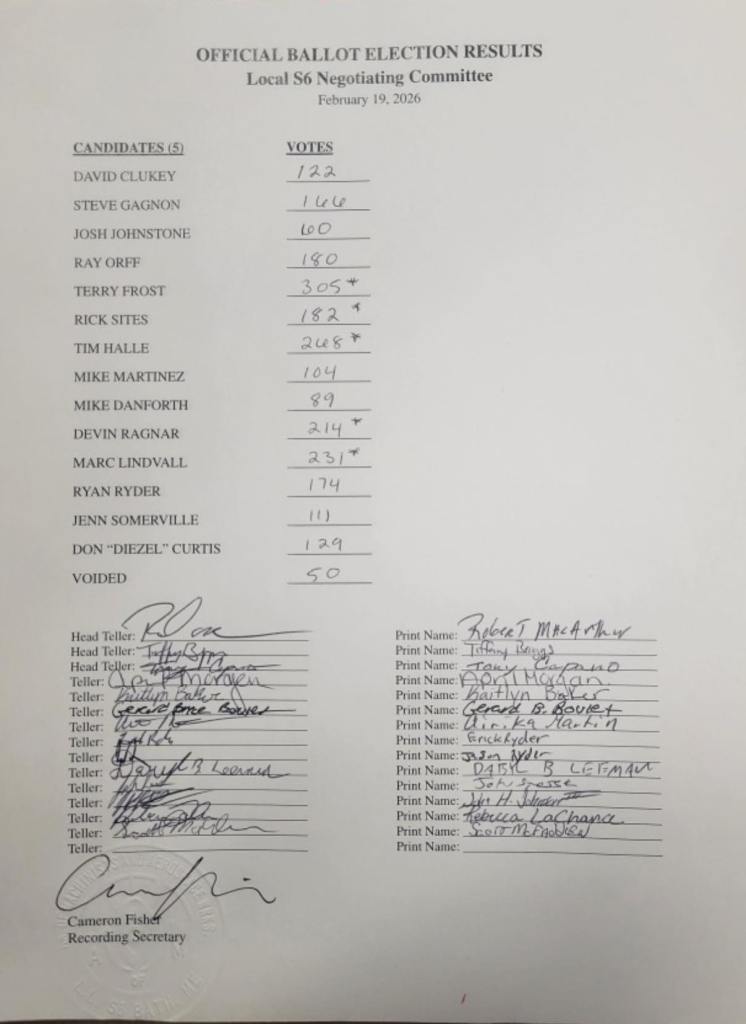 OFFICIAL BALLOT ELECTION RESULTS
Local S6 Negotiating Committee
February 19, 2026
CANDIDATES (5) VOTES
DAVID CLUKEY 122
STEVE GAGNON 166
JOSH JOHNSTONE 60
RAY ORFF 180
TERRY FROST 305*
RICK SITES 182*
TIM HALLE 268*
MIKE MARTINEZ 104
MIKE DANFORTH 89
DEVIN RAGNAR 214*
MARC LINDVALL 231*
RYAN RYDER 174
JENN SOMERVILLE 111
DON “DIEZEL” CURTIS 129
VOIDED 50
Head Teller: Print Name: Robert MacArthur
Head Teller: Print Name: Tiffany Briggs
Head Teller: Print Name: Tony Capano
Teller: April Morgan Print Name: April Morgan
Teller: Kaitlyn Baker Print Name: Kaitlyn Baker
Teller: Print Name: Gerard B. Boulet
Teller: Print Name: Martin
Teller: Print Name: Erick Ryder
Teller: Print Name: Jason Ryder
Teller: Print Name: DARYL B LEEMAN
Teller: Print Name:
Teller: Print Name: John H.
Teller: Print Name: Rebecca LaChance
Teller: Print Name: Scott McFadden
Teller: Print Name:
Cameron Fisher
Recording Secretary